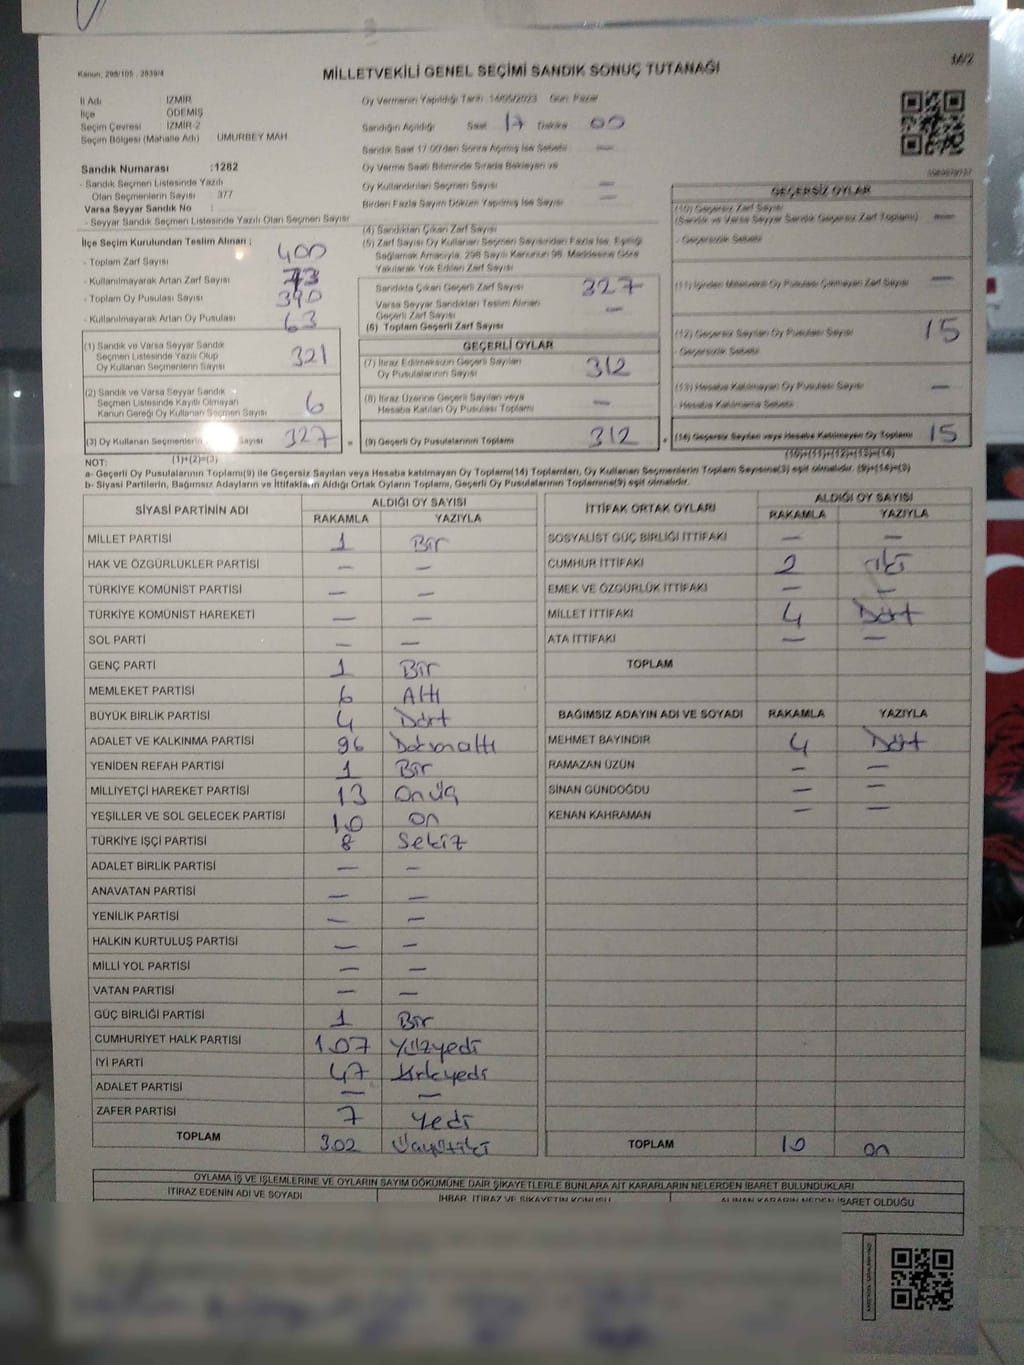 M/2
Kanun: 298/105 , 2839/4
MİLLETVEKİLİ GENEL SEÇİMİ SANDIK SONUÇ TUTANAĞI
İl Adı İZMİR
İlçe ÖDEMİŞ
Seçim Çevresi İZMİR-2
Seçim Bölgesi (Mahalle Adı) UMURBEY MAH.
Oy Vermenin Yapıldığı Tarih 14/05/2023 Gün: Pazar
Sandığın Açıldığı Saat 17 Dakika 00
Sandık Saat 17.00'den Sonra Açılmış İse Sebebi —
Oy Verme Saati Bitiminde Sırada Bekleyen ve
Oy Kullandırılan Seçmen Sayısı —
Birden Fazla Sayım Döküm Yapılmış İse Sayısı —
Sandık Numarası :1282
- Sandık Seçmen Listesinde Yazılı
Olan Seçmenlerin Sayısı 377
Varsa Seyyar Sandık No :
- Seyyar Sandık Seçmen Listesinde Yazılı Olan Seçmen Sayısı
İlçe Seçim Kurulundan Teslim Alınan ;
- Toplam Zarf Sayısı 400
- Kullanılmayarak Artan Zarf Sayısı 73
- Toplam Oy Pusulası Sayısı 390
- Kullanılmayarak Artan Oy Pusulası 63
(1) Sandık ve Varsa Seyyar Sandık
Seçmen Listesinde Yazılı Olup
Oy Kullanan Seçmenlerin Sayısı 321
(2) Sandık ve Varsa Seyyar Sandık
Seçmen Listesinde Kayıtlı Olmayan
Kanun Gereği Oy Kullanan Seçmen Sayısı 6
(3) Oy Kullanan Seçmenlerin Sayısı 327
(1)+(2)=(3)
(4) Sandıktan Çıkan Zarf Sayısı
(5) Zarf Sayısı Oy Kullanan Seçmen Sayısından Fazla İse, Eşitliği
Sağlamak Amacıyla, 298 Sayılı Kanunun 98. Maddesine Göre
Yakılarak Yok Edilen Zarf Sayısı
Sandıkta Çıkan Geçerli Zarf Sayısı 327
Varsa Seyyar Sandıktan Teslim Alınan
Geçerli Zarf Sayısı —
(6) Toplam Geçerli Zarf Sayısı
GEÇERLİ OYLAR
(7) İtiraz Edilmeksizin Geçerli Sayılan
Oy Pusulalarının Sayısı 312
(8) İtiraz Üzerine Geçerli Sayılan veya
Hesaba Katılan Oy Pusulası Toplamı —
= (9) Geçerli Oy Pusulalarının Toplamı 312
GEÇERSİZ OYLAR
(10) Geçersiz Zarf Sayısı
(Sandık ve Varsa Seyyar Sandık Geçersiz Zarf Toplamı) —
- Geçersizlik Sebebi
(11) İçinden Milletvekili Oy Pusulası Çıkmayan Zarf Sayısı —
(12) Geçersiz Sayılan Oy Pusulası Sayısı 15
- Geçersizlik Sebebi
(13) Hesaba Katılmayan Oy Pusulası Sayısı —
- Hesaba Katılmama Sebebi
+ (14) Geçersiz Sayılan veya Hesaba Katılmayan Oy Toplamı 15
(10)+(11)+(12)+(13)=(14)
NOT:
a- Geçerli Oy Pusulalarının Toplamı(9) ile Geçersiz Sayılan veya Hesaba katılmayan Oy Toplamı(14) Toplamları, Oy Kullanan Seçmenlerin Toplam Sayısına(3) eşit olmalıdır. (9)+(14)=(3)
b- Siyasi Partilerin, Bağımsız Adayların ve İttifakların Aldığı Ortak Oyların Toplamı, Geçerli Oy Pusulalarının Toplamına(9) eşit olmalıdır.
SİYASİ PARTİNİN ADI ALDIĞI OY SAYISI
RAKAMLA YAZIYLA
MİLLET PARTİSİ 1 Bir
HAK VE ÖZGÜRLÜKLER PARTİSİ — —
TÜRKİYE KOMÜNİST PARTİSİ — —
TÜRKİYE KOMÜNİST HAREKETİ — —
SOL PARTİ — —
GENÇ PARTİ 1 Bir
MEMLEKET PARTİSİ 6 Altı
BÜYÜK BİRLİK PARTİSİ 4 Dört
ADALET VE KALKINMA PARTİSİ 96 Doksanaltı
YENİDEN REFAH PARTİSİ 1 Bir
MİLLİYETÇİ HAREKET PARTİSİ 13 Onüç
YEŞİLLER VE SOL GELECEK PARTİSİ 10 on
TÜRKİYE İŞÇİ PARTİSİ 8 Sekiz
ADALET BİRLİK PARTİSİ — —
ANAVATAN PARTİSİ — —
YENİLİK PARTİSİ — —
HALKIN KURTULUŞ PARTİSİ — —
MİLLİ YOL PARTİSİ — —
VATAN PARTİSİ — —
GÜÇ BİRLİĞİ PARTİSİ 1 Bir
CUMHURİYET HALK PARTİSİ 107 Yüzyedi
İYİ PARTİ 47 kırkyedi
ADALET PARTİSİ — —
ZAFER PARTİSİ 7 Yedi
TOPLAM 302 Üçyüziki
İTTİFAK ORTAK OYLARI ALDIĞI OY SAYISI
RAKAMLA YAZIYLA
SOSYALİST GÜÇ BİRLİĞİ İTTİFAKI — —
CUMHUR İTTİFAKI 2 iki
EMEK VE ÖZGÜRLÜK İTTİFAKI — —
MİLLET İTTİFAKI 4 Dört
ATA İTTİFAKI — —
TOPLAM
BAĞIMSIZ ADAYIN ADI VE SOYADI RAKAMLA YAZIYLA
MEHMET BAYINDIR 4 Dört
RAMAZAN ÜZÜN — —
SİNAN GÜNDOĞDU — —
KENAN KAHRAMAN — —
TOPLAM 10 on
OYLAMA İŞ VE İŞLEMLERİNE VE OYLARIN SAYIM DÖKÜMÜNE DAİR ŞİKAYETLERLE BUNLARA AİT KARARLARIN NELERDEN İBARET BULUNDUKLARI
İTİRAZ EDENİN ADI VE SOYADI İHBAR, İTİRAZ VE ŞİKAYETİN KONUSU ALINAN KARARIN NEDEN İBARET OLDUĞU